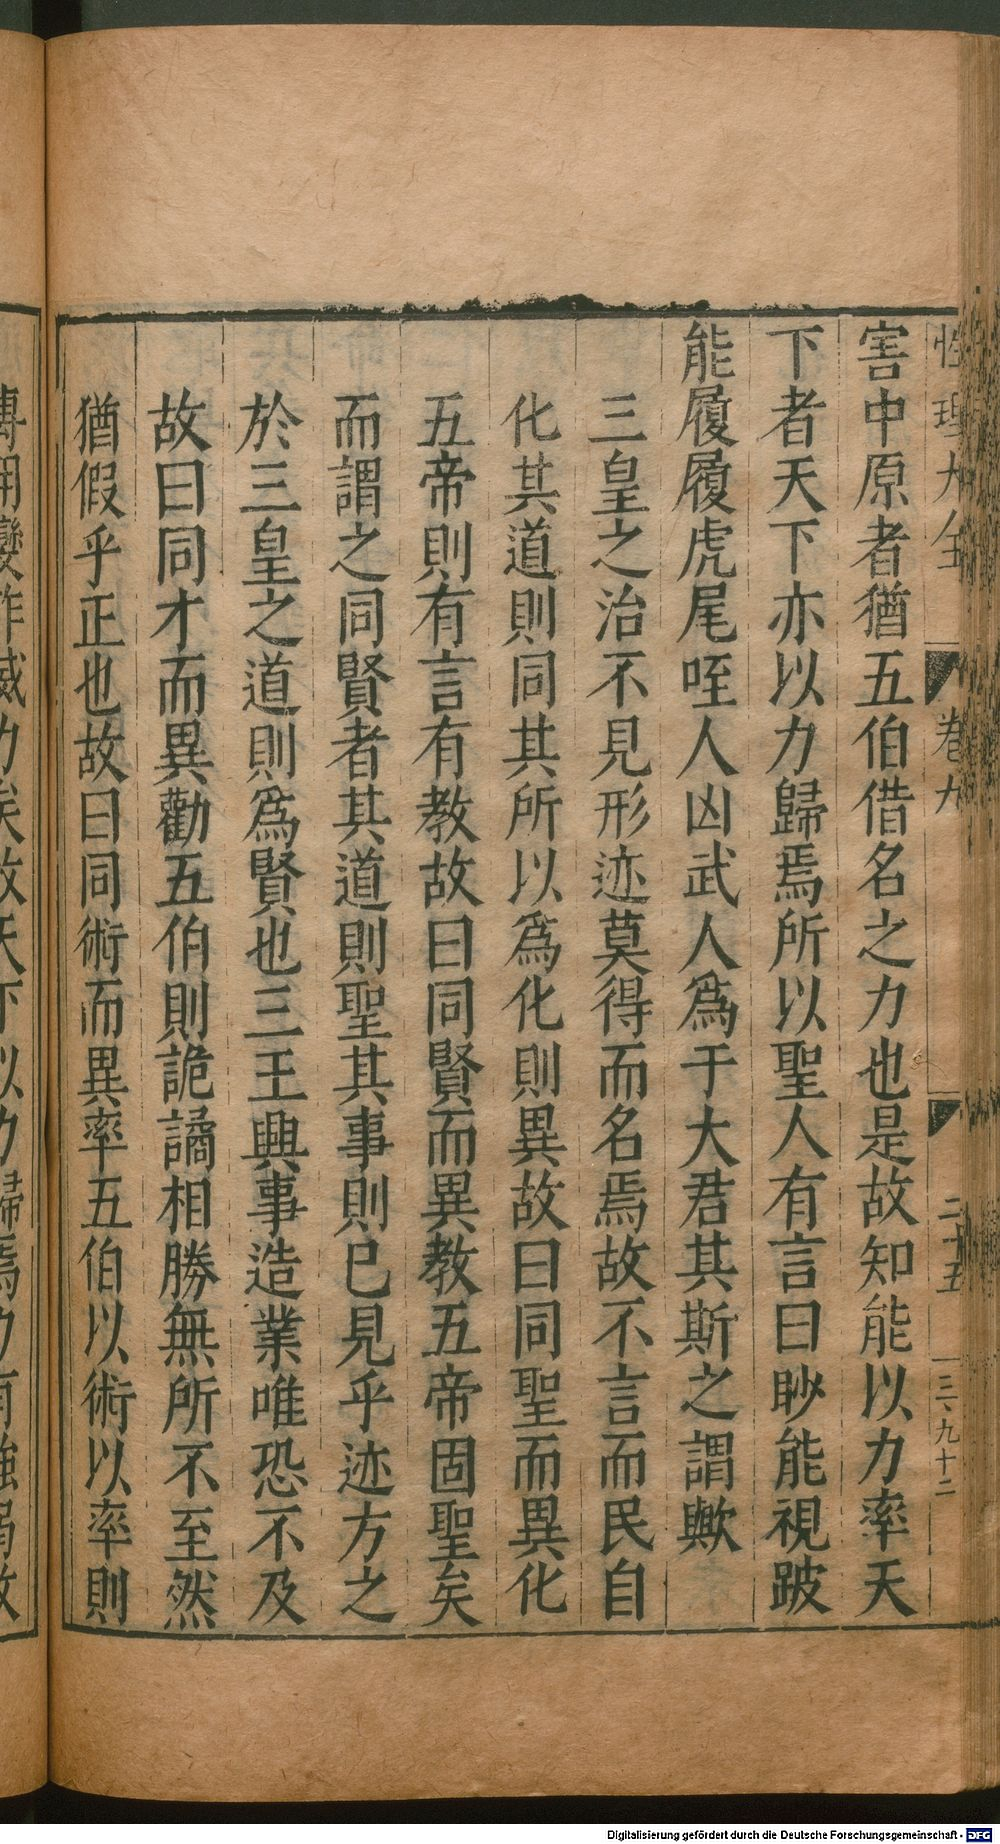 性理大全 卷九 二十五 三九十二
害中原者猶五伯借名之力也是故知能以力率天
下者天下亦以力歸焉所以聖人有言曰眇能視跛
能履履虎尾咥人凶武人爲于大君其斯之謂歟
三皇之治不見形迹莫得而名焉故不言而民自
化其道則同其所以爲化則異故曰同聖而異化
五帝則有言有教故曰同賢而異教五帝固聖矣
而謂之同賢者其道則聖其事則已見乎迹方之
於三皇之道則爲賢也三王興事造業唯恐不及
故曰同才而異勸五伯則詭譎相勝無所不至然
猶假乎正也故曰同術而異率五伯以術以率則
矣故天下以力歸焉力有強弱故
Digitalisierung gefördert durch die Deutsche Forschungsgemeinschaft - DFG